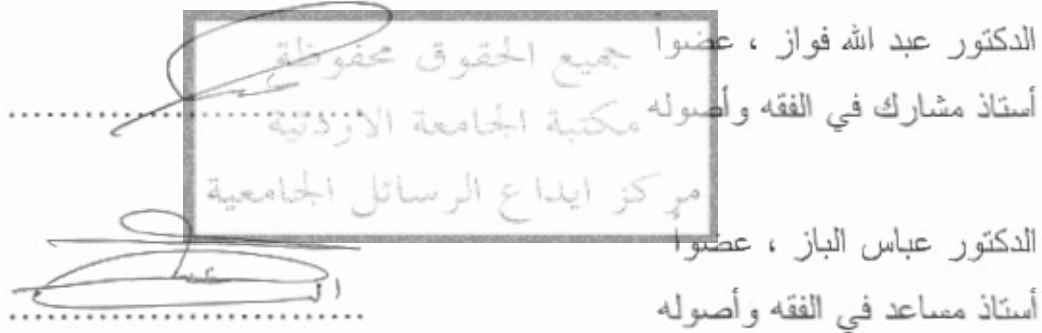 الدكتور عبد الله فواز ، عضواً
أستاذ مشارك في الفقه وأصوله
جميع الحقوق محفوظة
مكتبة الجامعة الاردنية
مركز ايداع الرسائل الجامعية
الدكتور عباس الباز ، عضواً
أستاذ مساعد في الفقه وأصوله